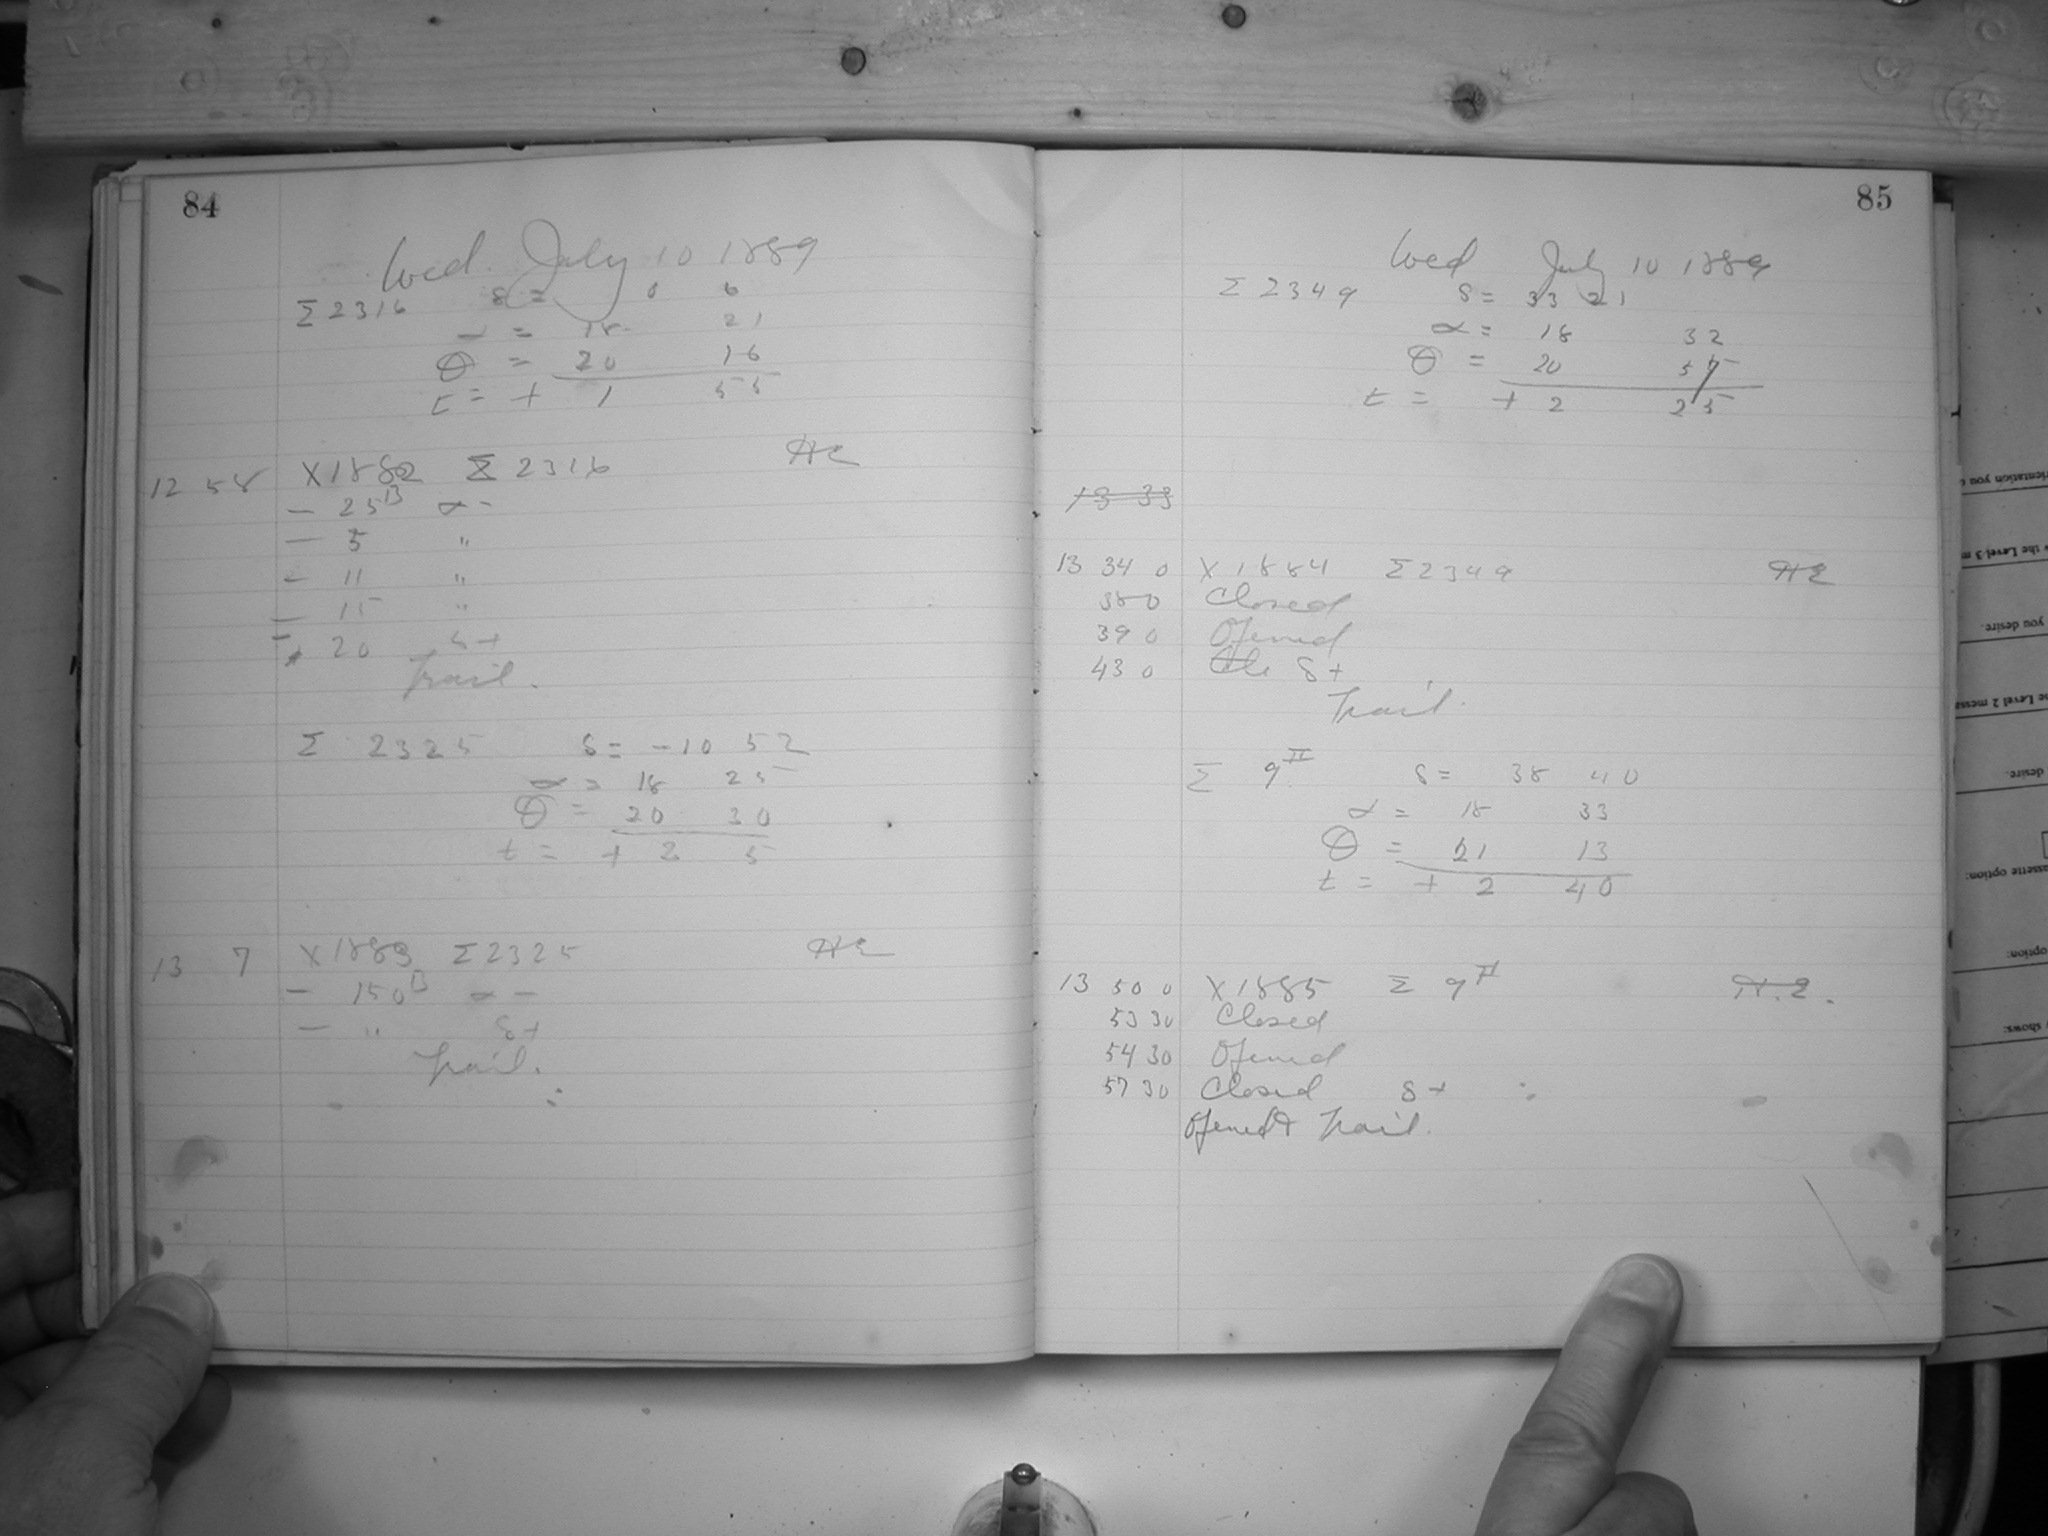 84
Wed. July 10 1889
Σ 2316 δ = 0 6
α = 18 21
θ = 20 16
t = + 1 55
12 58 X1882 Σ 2316 HE
— 25ᴮ α -
— 5 "
— 11 "
— 15 "
20 δ +
Trail.
Σ 2325 δ = -10 52
α = 18 25
θ = 20 30
t = + 2 5
13 7 X1883 Σ 2325 HE
— 150ᴮ α —
— " δ +
Trail.
85
Wed July 10 1889
Σ 2349 δ = 33 21
α = 18 32
θ = 20 57
t = + 2 25
13 33
13 34 0 X1884 Σ 2349 HE
38 0 Closed
39 0 Opened
43 0 Cl. δ +
Trail.
Σ 9ᴵᴵ δ = 38 40
α = 18 33
θ = 21 13
t = + 2 40
13 50 0 X1885 Σ 9ᴵᴵ H.E.
53 30 Closed
54 30 Opened
57 30 Closed δ +
Opened & Trail.
rientation you
the Level 3 m
you desire.
e Level 2 messa
desire.
assette option:
option:
shows: